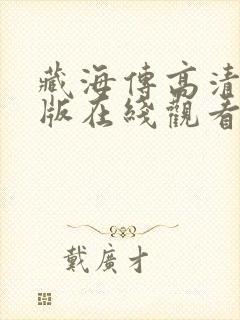 藏海傳高清
版在綫觀看
戴廣才